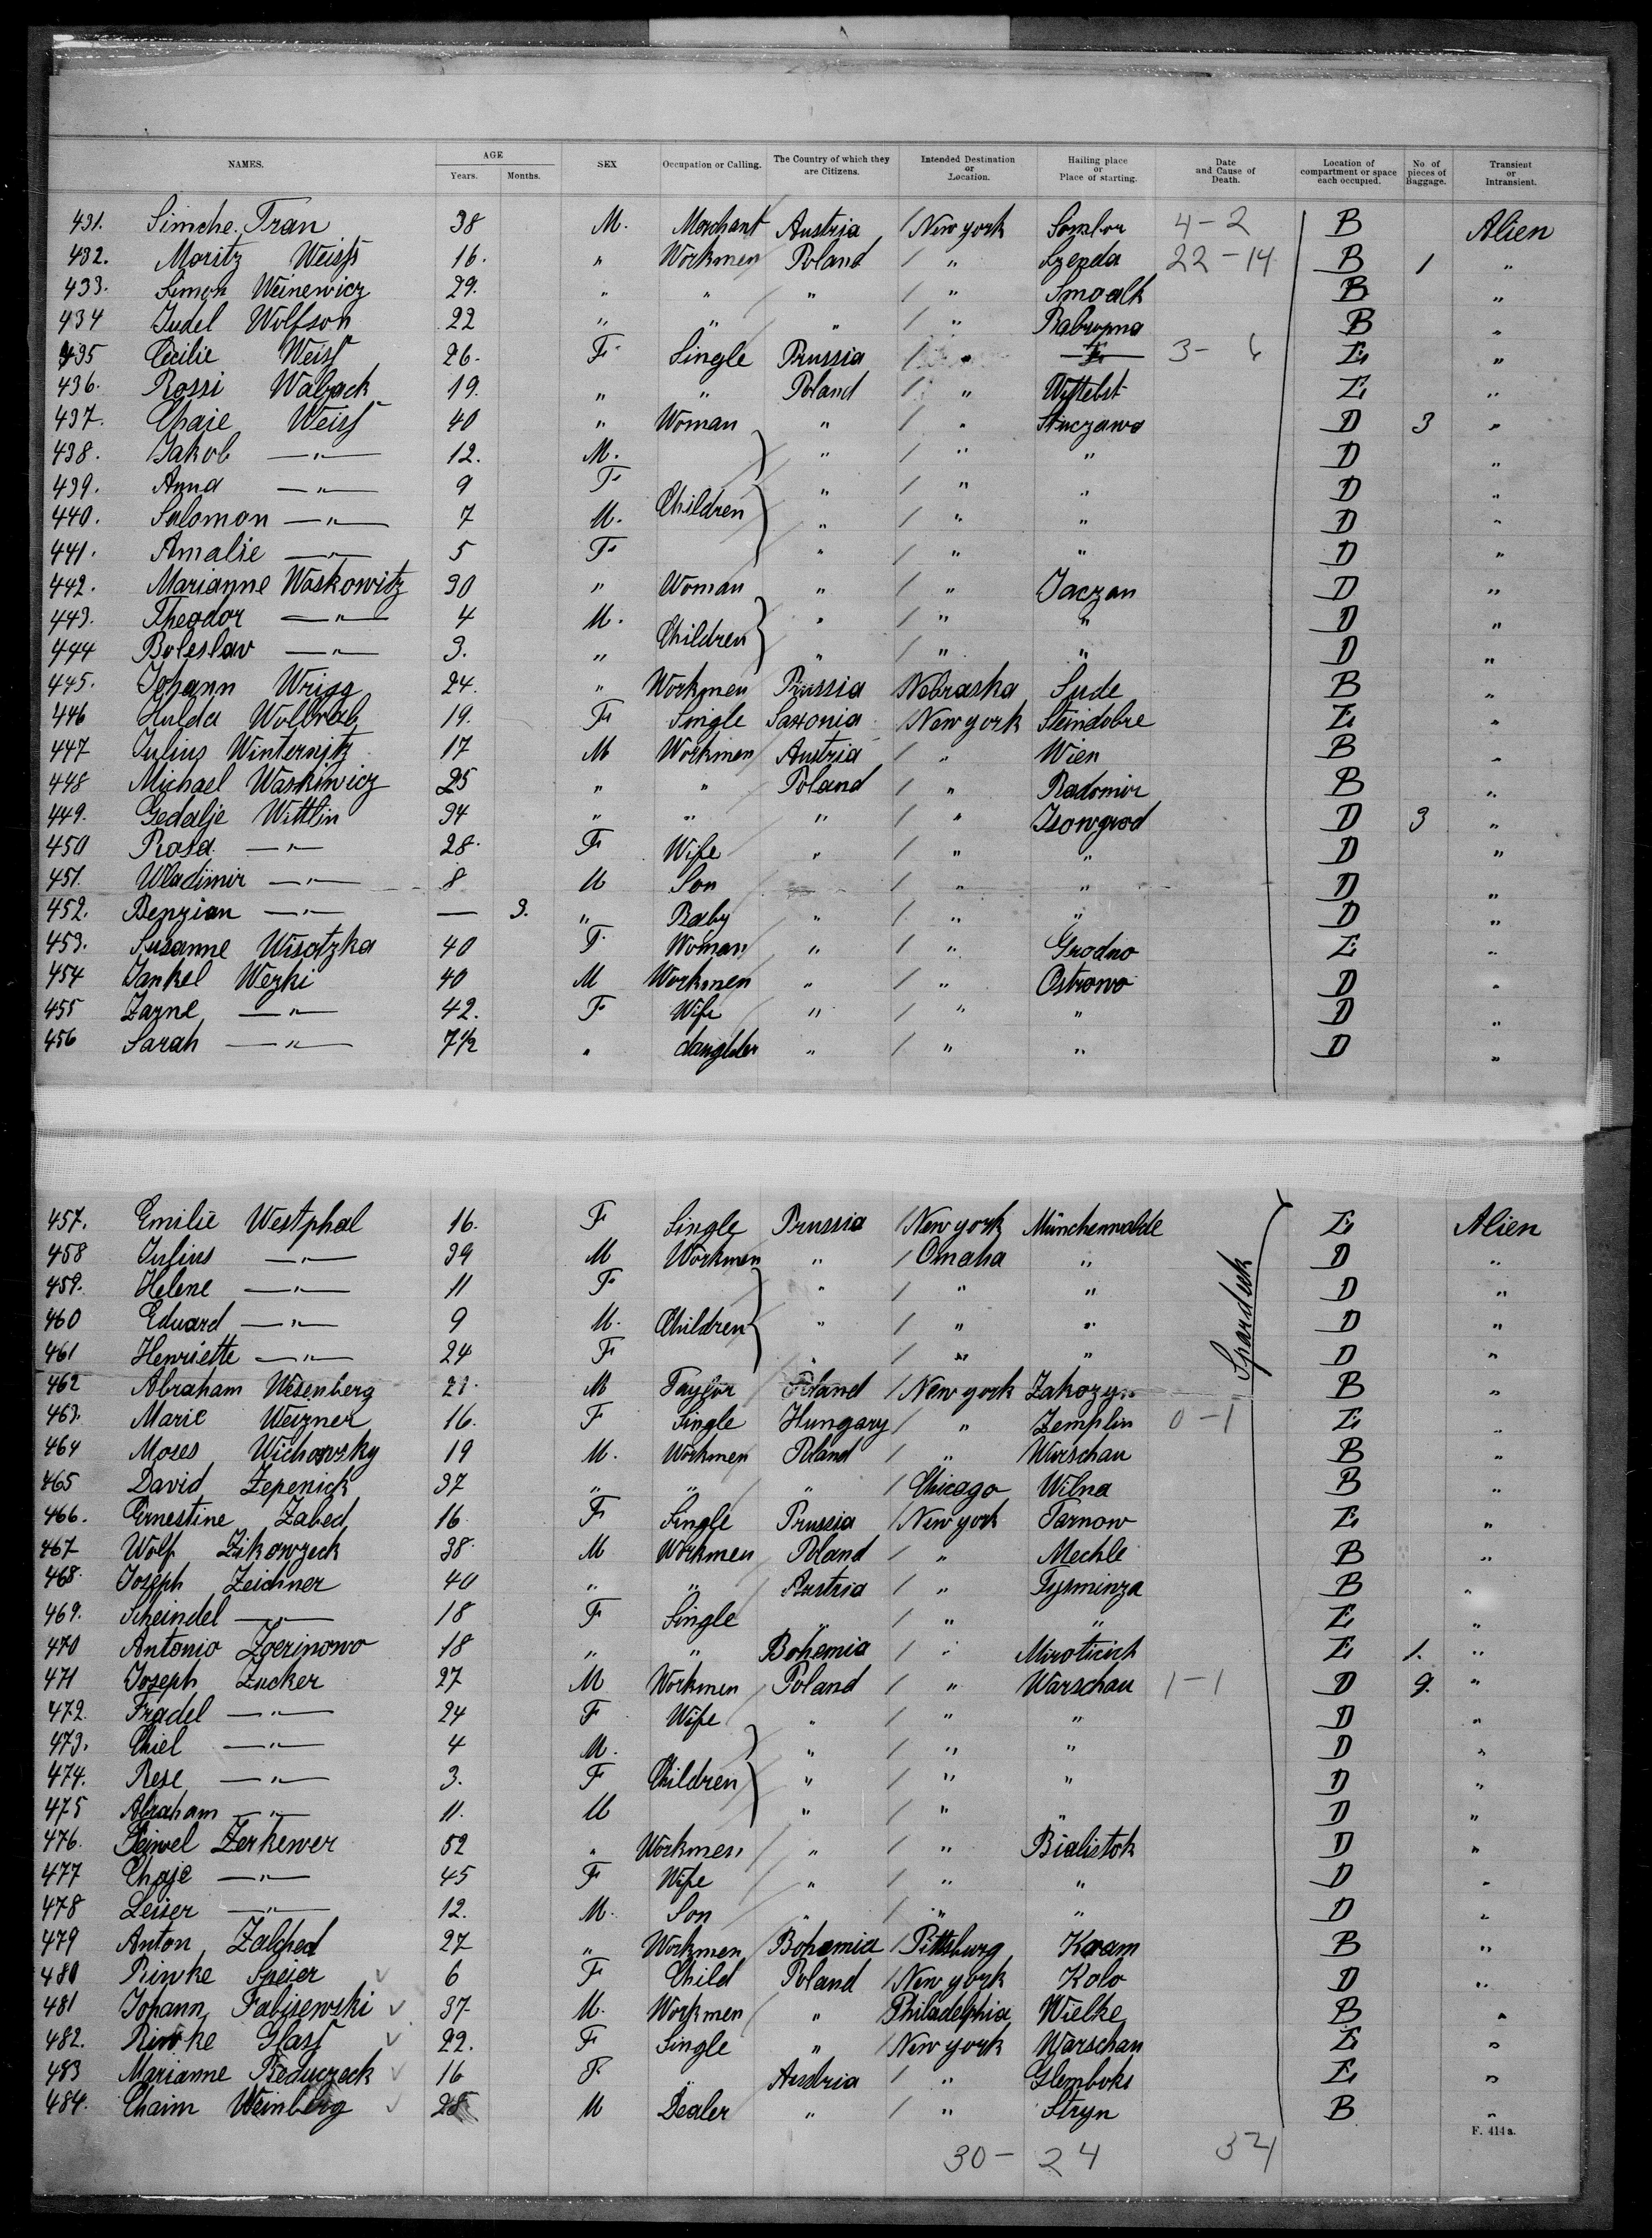 NAMES. AGE Years. Months. SEX Occupation or Calling. The Country of which they are Citizens. Intended Destination or Location. Hailing place or Place of starting. Date and Cause of Death. Location of compartment or space each occupied. No. of pieces of Baggage. Transient or Intransient.
431. Simche Tran 38 M. Merchant Austria / New york Sambor 4-2 B Alien
432. Moritz Weiss 16. " Workmen Poland / " 22-14 B 1 "
433. Simon Weinewicz 29. " " " / " B "
434 Judel Wolfson 22 " " " / " B "
435 Cecilie Weiss 26. F. Single Prussia / " 3- E "
436. Rossi 19. " " Poland / " Wittebst E "
437. Chaie Weiss 40 " Woman " / " D 3 "
438. Jakob —"— 12. M. " / " " D "
439. Anna —"— 9 F Children " / " " D "
440. Salomon —"— 7 M. " / " " D "
441. Amalie —"— 5 F. " / " " D "
442. Marianne Woskowitz 30 " Woman " / " Jaczan D "
443. Theodor —"— 4 M. Children " / " " D "
444 Boleslav —"— 3. " " / " " D "
445. Johann Wrigg 24. " Workmen Prussia Nebraska Sude B "
446 Hulda Wolbrab 19. F Single Saxonia / New york Steindobre E "
447 Julius Winternitz 17 M Workmen Austria / " Wien B "
448 Michael Waskiwicz 25 " " Poland / " Radomir B "
449. Gedalje Wittlin 34 " " " / " D 3 "
450 Rosa —"— 28. F Wife " / " " D "
451. Wladimir —"— 8 M Son / " " D "
452. Benzian —"— — 3. " Baby " / " " D "
453. Susanne Wisotzka 40 F Woman " / " Grodno E "
454 Jankel Wezki 40 M Workmen " / " Ostrowo D "
455 Zarne —"— 42. F Wife " / " " D "
456 Sarah —"— 7½ " daughter " / " " D "
457. Emilie Westphal 16. F Single Prussia / New york Münchenwalde E Alien
458 Julius —"— 39 M Workmen " / Omaha " D "
459. Helene —"— 11 F " / " " D "
460 Eduard —"— 9 M. Children " / " " D "
461 Henriette —"— 24 F " / " " D "
Spardeck
462 Abraham Wesenberg 21. M Taylor Poland / New york B "
463. Marie Weizner 16. F Single Hungary / " Zemplin 0-1 E "
464 Moses Wichowsky 19 M. Workmen Poland / " Warschau B "
465 David Zepenick 37 " " " / Chicago Wilna B "
466. Ernestine Zabed 16 F Single Prussia / New york Tarnow E "
467 Wolf Zikowzeck 38. M Workmen Poland / " Mechle B "
468. Joseph Zeichner 40 " " Austria / " Tysminza B "
469. Scheindel —"— 18 F Single " / " " E "
470 Antonio Zoerinowo 18 " " Bohemia / " E 1. "
471 Joseph Zucker 27 M Workmen Poland / " Warschau 1-1 D 9. "
472. Fradel —"— 24 F Wife " / " " D "
473. Chiel —"— 4 M. " / " " D "
474. Rese —"— 3. F Children " / " " D "
475 Abraham —"— 11. M " / " " D "
476. Zerkewer 52 " Workmen " / " Bialistok D "
477 Chaje —"— 45 F Wife " / " " D "
478 Leiser —"— 12. M. Son " / " " D "
479 Anton Zalched 27 " Workmen Bohemia / Pittsburg B "
480 Riwke Speier 6 F Child Poland / New york Kolo D "
481 Johann Fabisewski 37 M. Workmen " Philadelphia Wielke B "
482. Riwke Glass 22. F Single " New york Warschau E "
483 Marianne 16 F " Austria / " Glemboki E "
484. Chaim Weinberg 28 M Dealer " / " Stryn B "
F. 414a.
30- 24